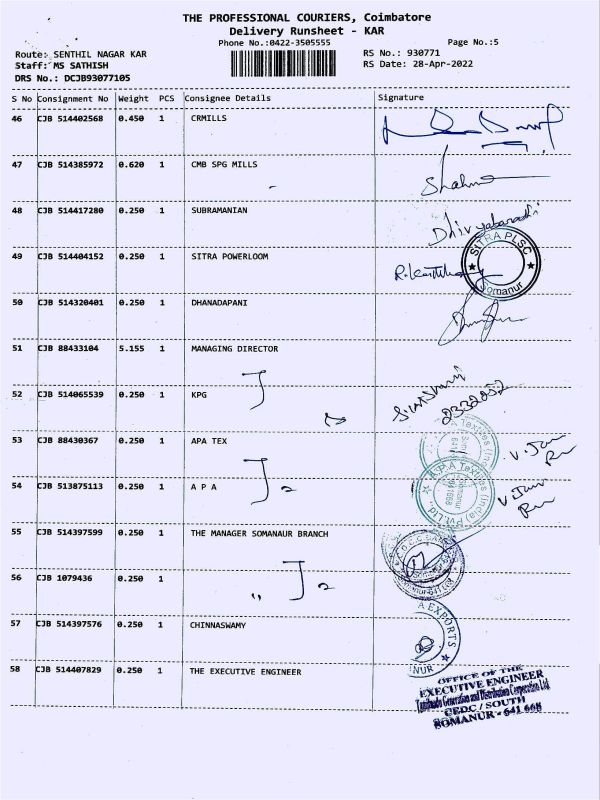 THE PROFESSIONAL COURIERS, Coimbatore
Delivery Runsheet - KAR
Phone No.:0422-3505555
Page No.:5
Route:- SENTHIL NAGAR KAR
RS No.: 930771
Staff: MS SATHISH
RS Date: 28-Apr-2022
DRS No.: DCJB93077105
S No Consignment No Weight PCS Consignee Details Signature
46 CJB 514402568 0.450 1 CRMILLS
47 CJB 514385972 0.620 1 CMB SPG MILLS
Shahm
48 CJB 514417280 0.250 1 SUBRAMANIAN
Dhivyabarathi
49 CJB 514404152 0.250 1 SITRA POWERLOOM
SITRA PLSC
Somanur
50 CJB 514320401 0.250 1 DHANADAPANI
51 CJB 88433104 5.155 1 MANAGING DIRECTOR
52 CJB 514065539 0.250 1 KPG
2332052
53 CJB 88430367 0.250 1 APA TEX
V. Jan
54 CJB 513875113 0.250 1 A P A
A.P.A Textiles (India) Pvt Ltd.,
V. Jan
55 CJB 514397599 0.250 1 THE MANAGER SOMANAUR BRANCH
56 CJB 1079436 0.250 1 ,,
57 CJB 514397576 0.250 1 CHINNASWAMY
A EXPORTS
NUR
58 CJB 514407829 0.250 1 THE EXECUTIVE ENGINEER
OFFICE OF THE
EXECUTIVE ENGINEER
Tamilnadu Generation and Distribution Corporation Ltd
CEDC / SOUTH
SOMANUR - 641 668